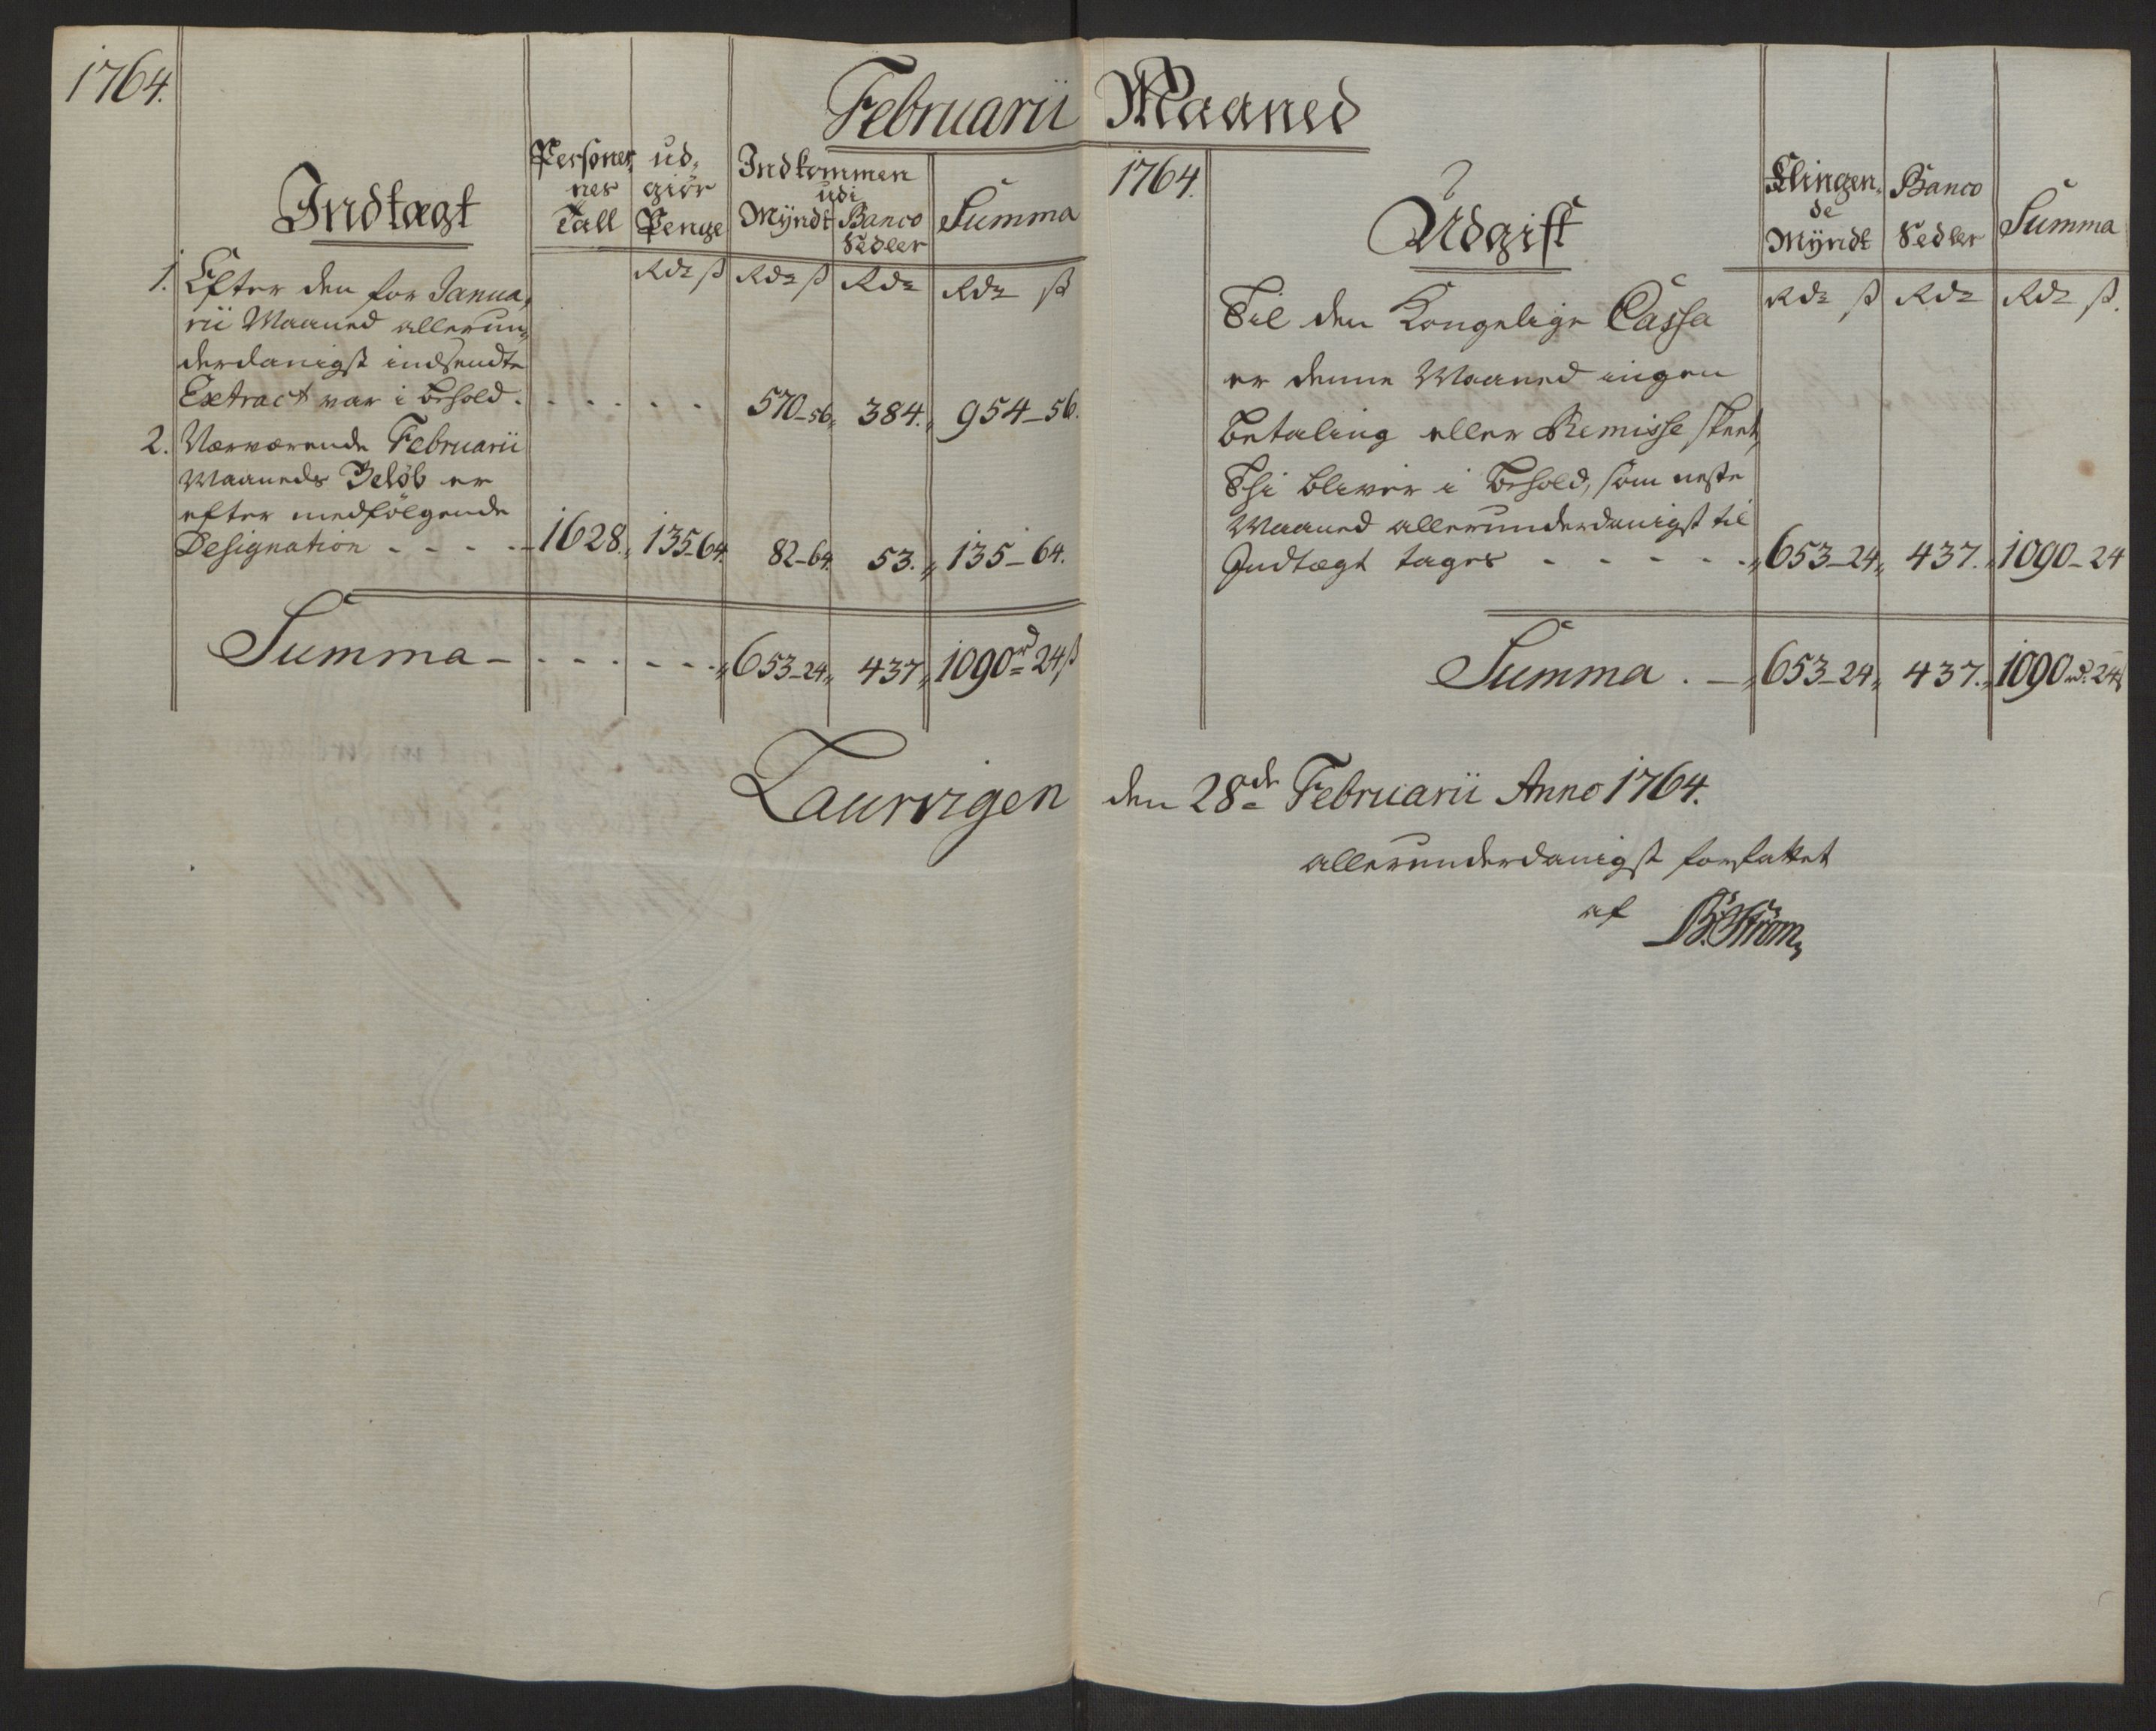 1764.
Februarii Maaned
Indtægt
Personer,
nes
Tall
ud,
giør
Penge
Indkommen
udi
Mÿndt
Banco
Sedler
Summa
Rdr ß
Rdr ß
Rdr
Rdr ß
1. Efter den for Janua,
rii Maaned allerun,
derdanigst indsendte
Extract var i behold . . . . . . 570-56, 384., 954-56.
2. Nærværende Februarii
Maaneds Beløb er
efter medfølgende
Designation - - - - 1628., 135-64. 82-64. 53., 135-64.
Summa - . - . - - - . 653-24, 437., 1090rd 24ß
1764.
Udgift
Klingen,
de
Mÿndt
Banco
Sedler
Summa
Rdr ß
Rdr
Rdr ß.
Til den Kongelige Cassa
er denne Maaned ingen
betaling eller Remisse skeet,
Thi bliver i behold, som neste
Maaned allerunderdanigst til
Indtægt tages - - - - - „653-24, 437., 1090-24
Summa . - „653-24, 437., 1090rd. 24ß
Laurvigen den 28de Februarii Anno 1764.
allerunderdanigst forfattet
af